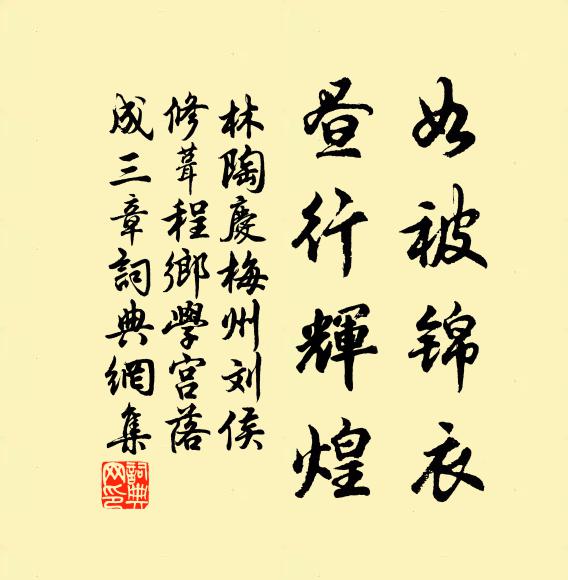 如被锦衣
昼行輝煌
林陶慶梅州刘侯
修葺程鄉學宫落
成三章詞典網集